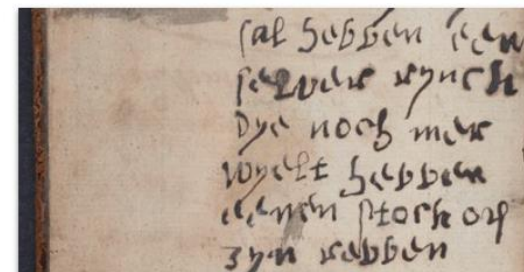 sal hebben een
selver rynck
Dye noch mer
wyelt hebben
eenen stock op
zyn rebben